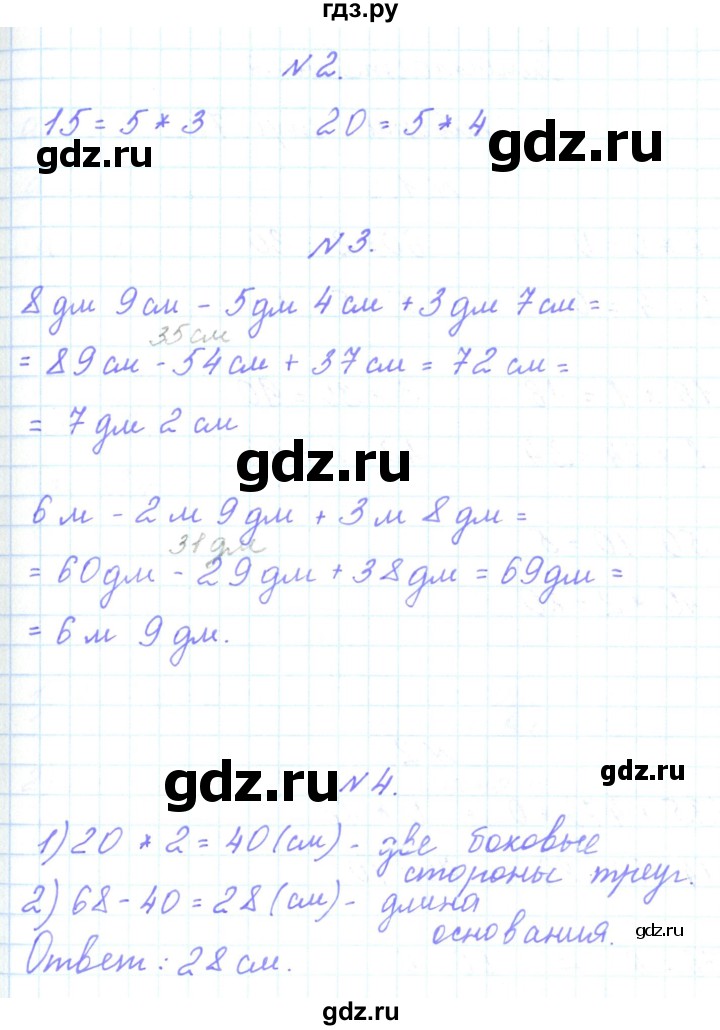 гдз.ру
N 2.
15 = 5 * 3 20 = 5 * 4
gdz.ru gdz.ru
N 3.
8 дм 9 см - 5 дм 4 см + 3 дм 7 см =
35 см
= 89 см - 54 см + 37 см = 72 см =
= 7 дм 2 см
gdz.ru
6 м - 2 м 9 дм + 3 м 8 дм =
31 дм
= 60 дм - 29 дм + 38 дм = 69 дм =
= 6 м 9 дм.
gdz.ru N 4. gdz.ru
1) 20 * 2 = 40 (см) - две боковые
стороны треуг.
2) 68 - 40 = 28 (см) - длина
основания.
gdz.ru
Ответ: 28 см.
gdz.ru